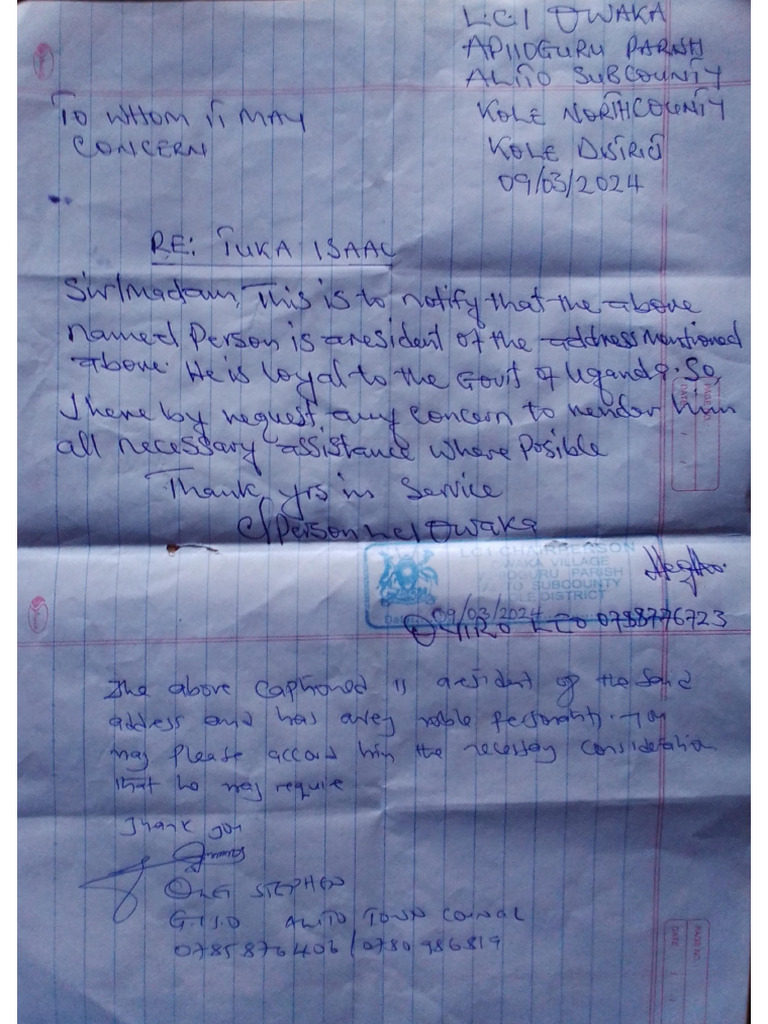 L.C.I OWAKA
APIIOGURU PARISH
ALITO SUBCOUNTY
TO WHOM IT MAY
CONCERN
KOLE NORTHCOUNTY
KOLE DISTRICT
09/03/2024
RE: TUKA ISAAC
Sir/madam, This is to notify that the above
named Person is aresident of the address mentioned
above. He is loyal to the Govt of Uganda. So,
I hereby request any concern to render him
all necessary assistance where Posible
Thank yrs in Service
C/Person LCI Owaka
LC I CHAIRPERSON
WAKA VILLAGE
OGURU PARISH
TO SUBCOUNTY
OLE DISTRICT
09/03/2024
0788776723
The above captioned is aresident of the said
address and has avery noble personality. You
may please accord him the necessary consideration
that he may require
Thank you
STEPHEN
G.I.S.O ALITO TOWN COUNCIL
0785876406/0780986819
PAGE NO.
DATE
PAGE NO.
DATE